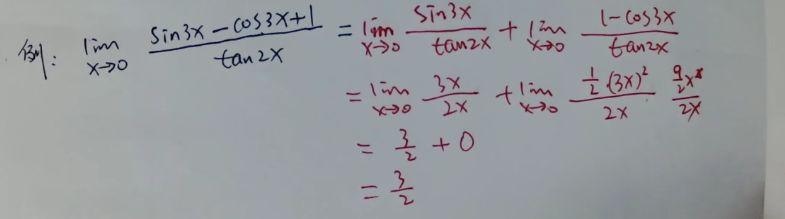 例: lim x→0 (sin3x - cos3x + 1)/(tan2x) = lim x→0 (sin3x)/(tan2x) + lim x→0 (1 - cos3x)/(tan2x)
= lim x→0 (3x)/(2x) + lim x→0 (½·(3x)²)/(2x) (9/2 x²)/(2x)
= 3/2 + 0
= 3/2